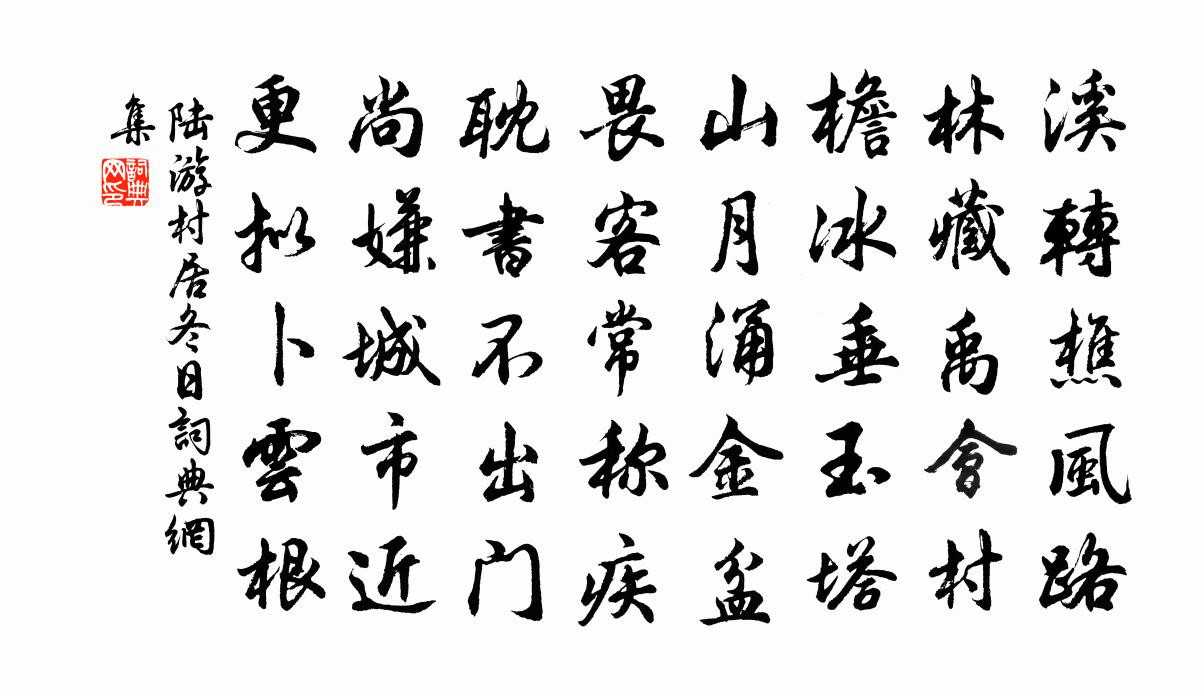 溪轉樵風路
林藏禹會村
檐冰垂玉塔
山月涌金盆
畏客常称疾
耽書不出门
尚嫌城市近
更拟卜雲根
陆游村居冬日詞典網
集
詞典
网印